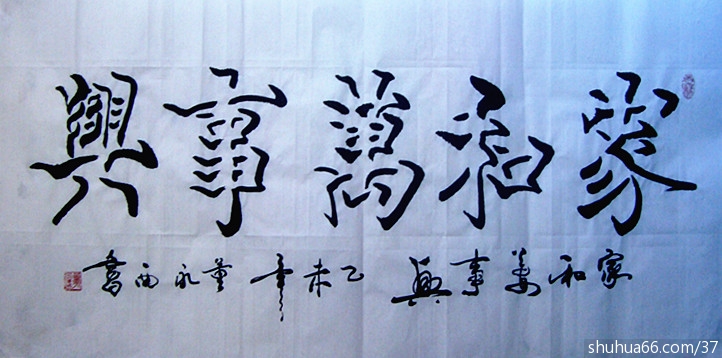 家和萬事興
家和萬事興 乙未年 董永西書
shuhua66.com/37